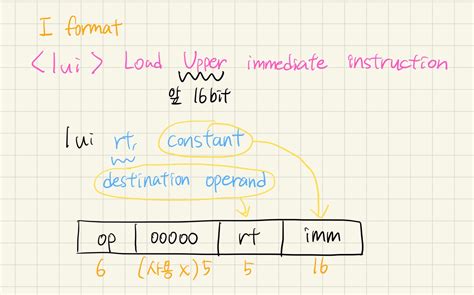 I format
<lui> Load Upper immediate instruction
앞 16bit
lui rt, constant
destination operand
op 00000 rt imm
6 (사용 X) 5 5 16